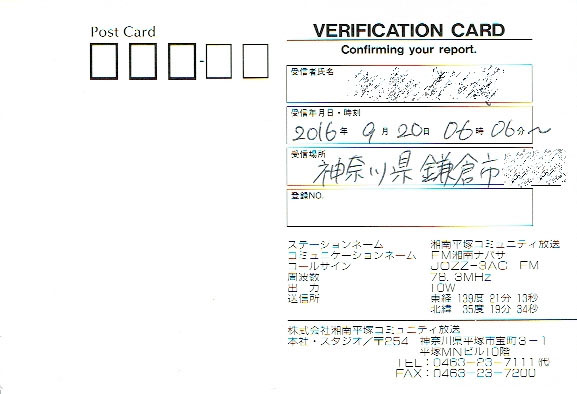 Post Card
VERIFICATION CARD
Confirming your report.
受信者氏名
受信年月日・時刻
2016年 9月 20日 06時 06分~
受信場所
神奈川県鎌倉市
登録NO.
ステーションネーム 湘南平塚コミュニティ放送
コミュニケーションネーム FM湘南ナパサ
コールサイン JOZZ-3AC FM
周波数 78.3MHz
出 力 10W
送信所 東経 139度 21分 13秒
北緯 35度 19分 34秒
株式会社湘南平塚コミュニティ放送
本社・スタジオ/〒254 神奈川県平塚市宝町3-1
平塚MNビル10階
TEL:0463-23-7111(代)
FAX:0463-23-7200